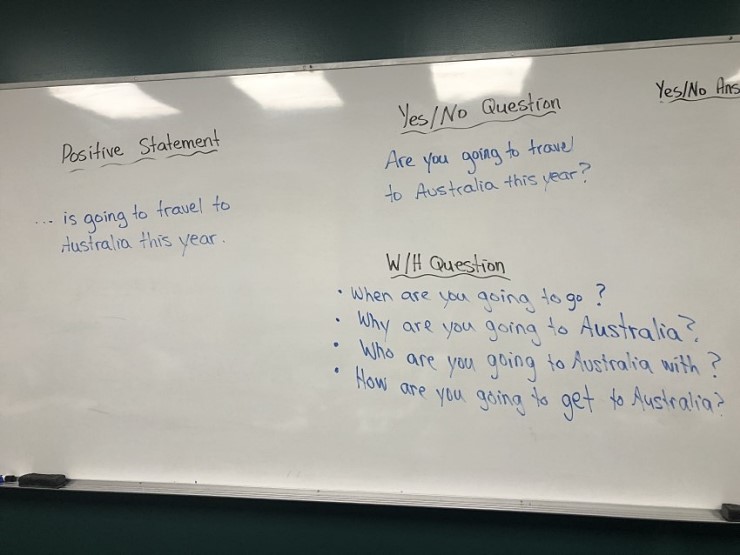 Positive Statement
... is going to travel to
Australia this year.
Yes/No Question
Are you going to travel
to Australia this year?
W/H Question
• When are you going to go?
• Why are you going to Australia?
• Who are you going to Australia with?
• How are you going to get to Australia?
Yes/No Ans